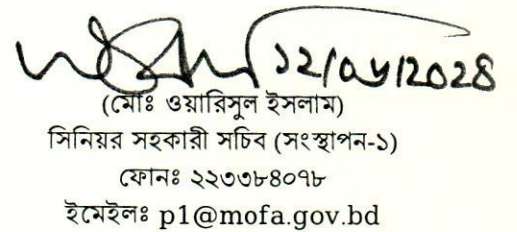 ১২/০৬/২০২৪
(মোঃ ওয়ারিসুল ইসলাম)
সিনিয়র সহকারী সচিব (সংস্থাপন-১)
ফোনঃ ২২৩৩৮৪০৭৮
ইমেইলঃ p1@mofa.gov.bd